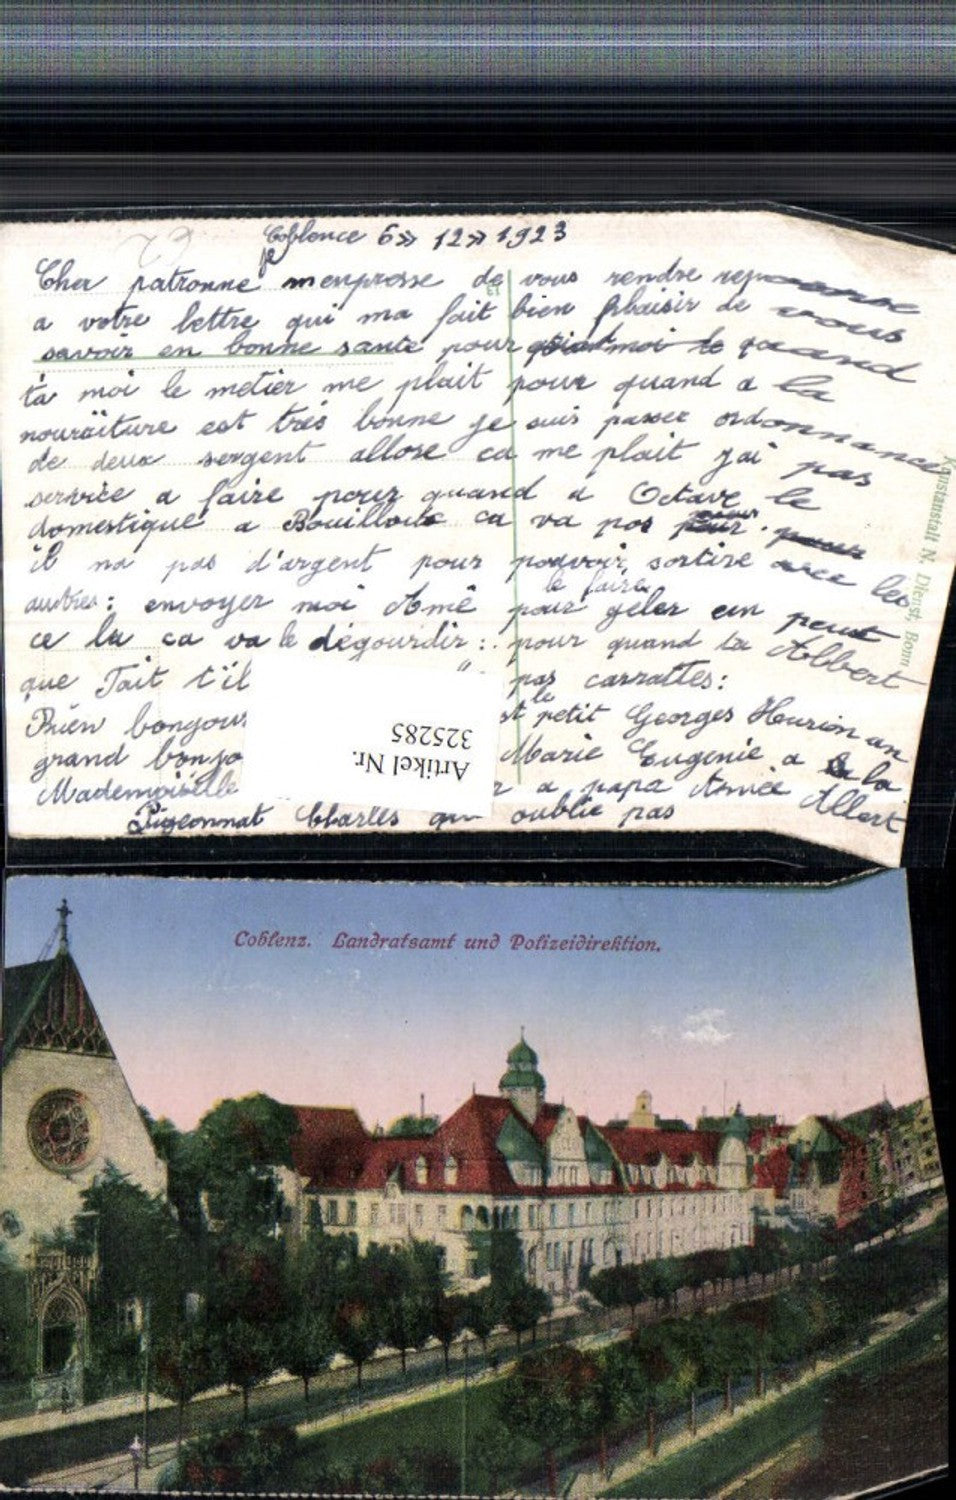 Coblence 6 » 12 » 1923
Cher patronne je m'enpresse de vous rendre
a votre lettre qui ma fait bien plaisir de vous
savoir en bonne santé pour quand
ta moi le metier me plait pour quand a la
nourriture est trés bonne je suis passer ordonnance
de deux sergent allose ca me plait j'ai pas
service a faire pour quand a Octave le
domestique a ca va pas
il na pas d'argent pour pouvoir sortire avec les
autres: envoyer moi Amé pour le faire geler un peut
ce la ca va le dégourdir: pour quand ta Albert
que Fait t'il pas carrattes:
Bien bonjour st le petit Georges Henrion an
grand bonjo Marie Eugenie a la
Mademoiselle r a papa Amée Albert
Pigeonnat Charles qu oublie pas
Kunstanstalt N. Dienst, Bonn
Artikel Nr.
325285
Coblenz. Landratsamt und Polizeidirektion.